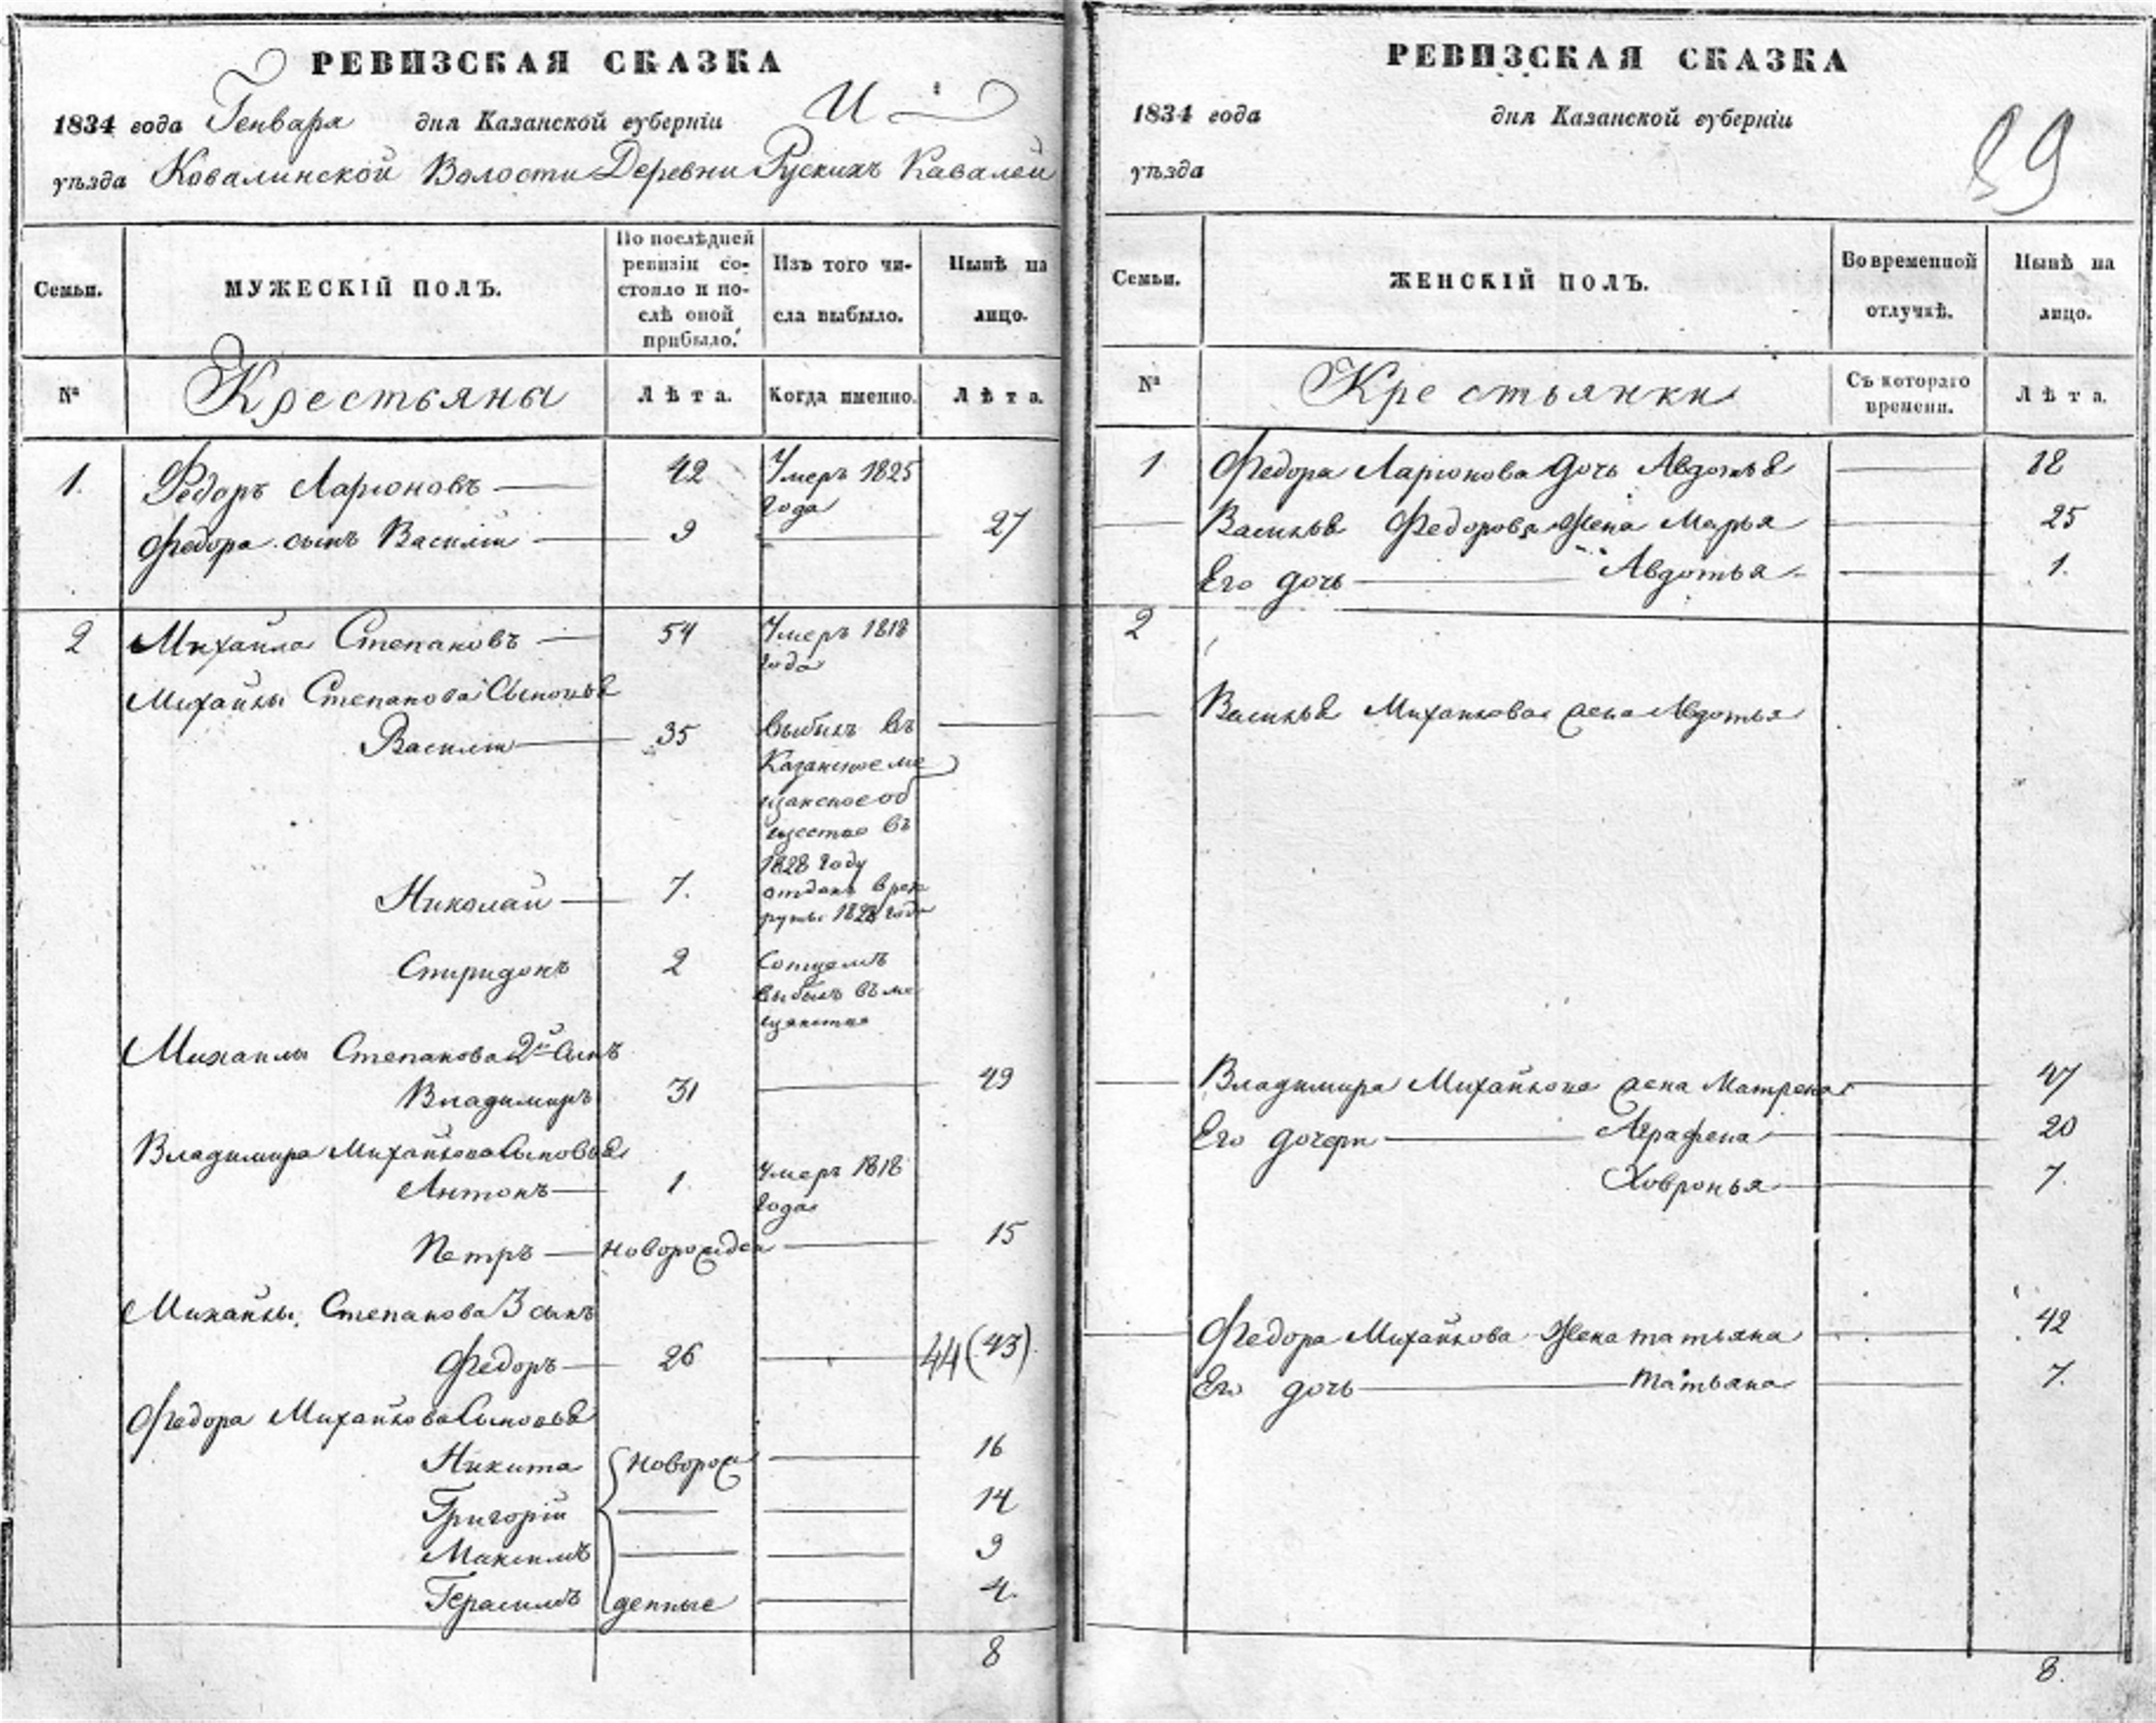 РЕВИЗСКАЯ СКАЗКА
1834 года Генваря дня Казанской губерніи
уѣзда Ковалинской Волости Деревни Рускихъ Кавалей
Семьи.
МУЖЕСКІЙ ПОЛЪ.
По послѣдней
ревизіи со-
стояло и по-
слѣ оной
прибыло.
Изъ того чи-
сла выбыло.
Нынѣ на
лицо.
№
Крестьяны
Лѣта.
Когда именно.
Лѣта.
1. Федоръ Ларионовъ 42 Умеръ 1825
года
Федора сынъ Василій 9 27
2 Михайла Степановъ 54 Умеръ 1818
года
Михайлы Степанова Сыновья
Василій 35 выбылъ въ
Казанское ме
щанское об
щество въ
1828 году
Николай 7. отданъ в рек
руты 1828 года
Спиридонъ 2 Сотцемъ
выбылъ въ ме
щанство
Михаилы Степанова 2й Сынъ
Владимиръ 31 49
Владимира Михайлова Сыновья
Антонъ 1. Умеръ 1818
года
Петръ новорожден 15
Михайлы Степанова 3 сынъ
Федоръ 26 44 (43)
Федора Михайлова Сыновья
Никита новорож 16
Григорій 14
Максимъ 9
Герасимъ денные 4.
8
РЕВИЗСКАЯ СКАЗКА
1834 года дня Казанской губерніи
уѣзда
Семьи.
ЖЕНСКІЙ ПОЛЪ.
Во временной
отлучкѣ.
Нынѣ на
лицо.
№
Крестьянки
Съ котораго
времени.
Лѣта.
1. Федора Ларионова дочь Авдотья 18
Василья Федорова Жена Марья 25
Его дочь Авдотья 1.
2
Василья Михайлова жена Авдотья
Владимира Михайлова жена Матрена 47
Его дочери Аграфена 20
Ховронья 7.
Федора Михайлова Жена татьяна 42
Его дочь татьяна 7.
8.